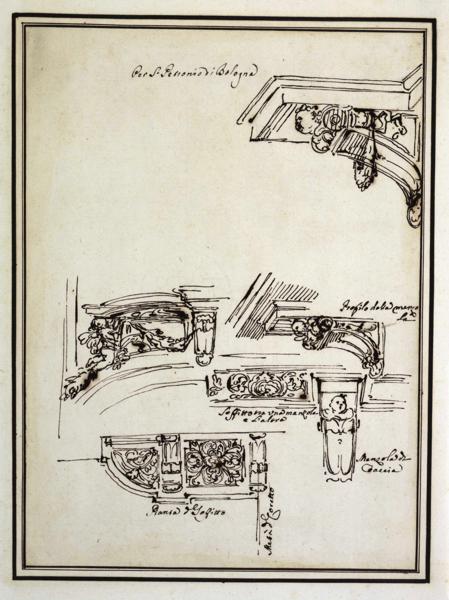 Per S. Petronio di Bologna
Profilo della mensola
Soffitto tra una mensola
e l'altra
Mensola di
faccia
Pianta di Sofitto
Metà di Coretto